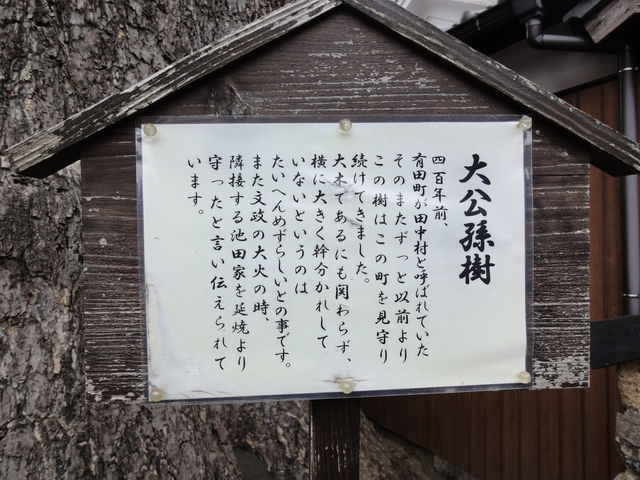 大公孫樹
四百年前、
有田町が田中村と呼ばれていた
そのまたずっと以前より
この樹はこの町を見守り
続けてきました。
大木であるにも関わらず、
横に大きく幹分かれして
いないというのは
たいへんめずらしいとの事です。
また文政の大火の時、
隣接する池田家を延焼より
守ったと言い伝えられて
います。